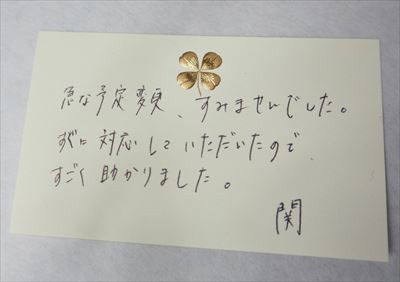 急な予定変更、すみませんでした。
すぐに対応していただいたので
すごく助かりました。
関